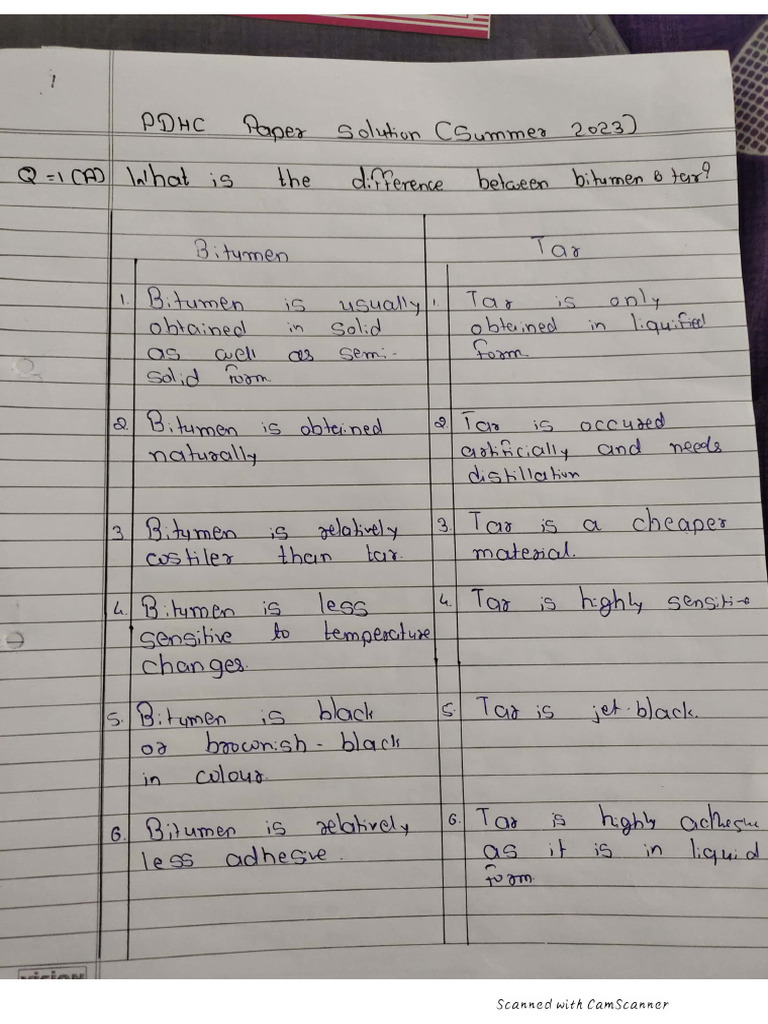 1
PDHC Paper Solution (Summer 2023)
Q=1(A) What is the difference between bitumen & tar?
Bitumen
1. Bitumen is usually
obtained in solid
as well as semi-
solid form.
2. Bitumen is obtained
naturally
3 Bitumen is relatively
costiler than tar.
4. Bitumen is less
sensitive to temperature
changes.
5. Bitumen is black
or brownish-black
in colour.
6. Bitumen is relatively
less adhesive.
Tar
1. Tar is only
obtained in liquified
form.
2. Tar is occured
artificially and needs
distillation
3. Tar is a cheaper
material.
4. Tar is highly sensitive
5. Tar is jet-black.
6. Tar is highly adhesive
as it is in liquid
form.
vision
Scanned with CamScanner